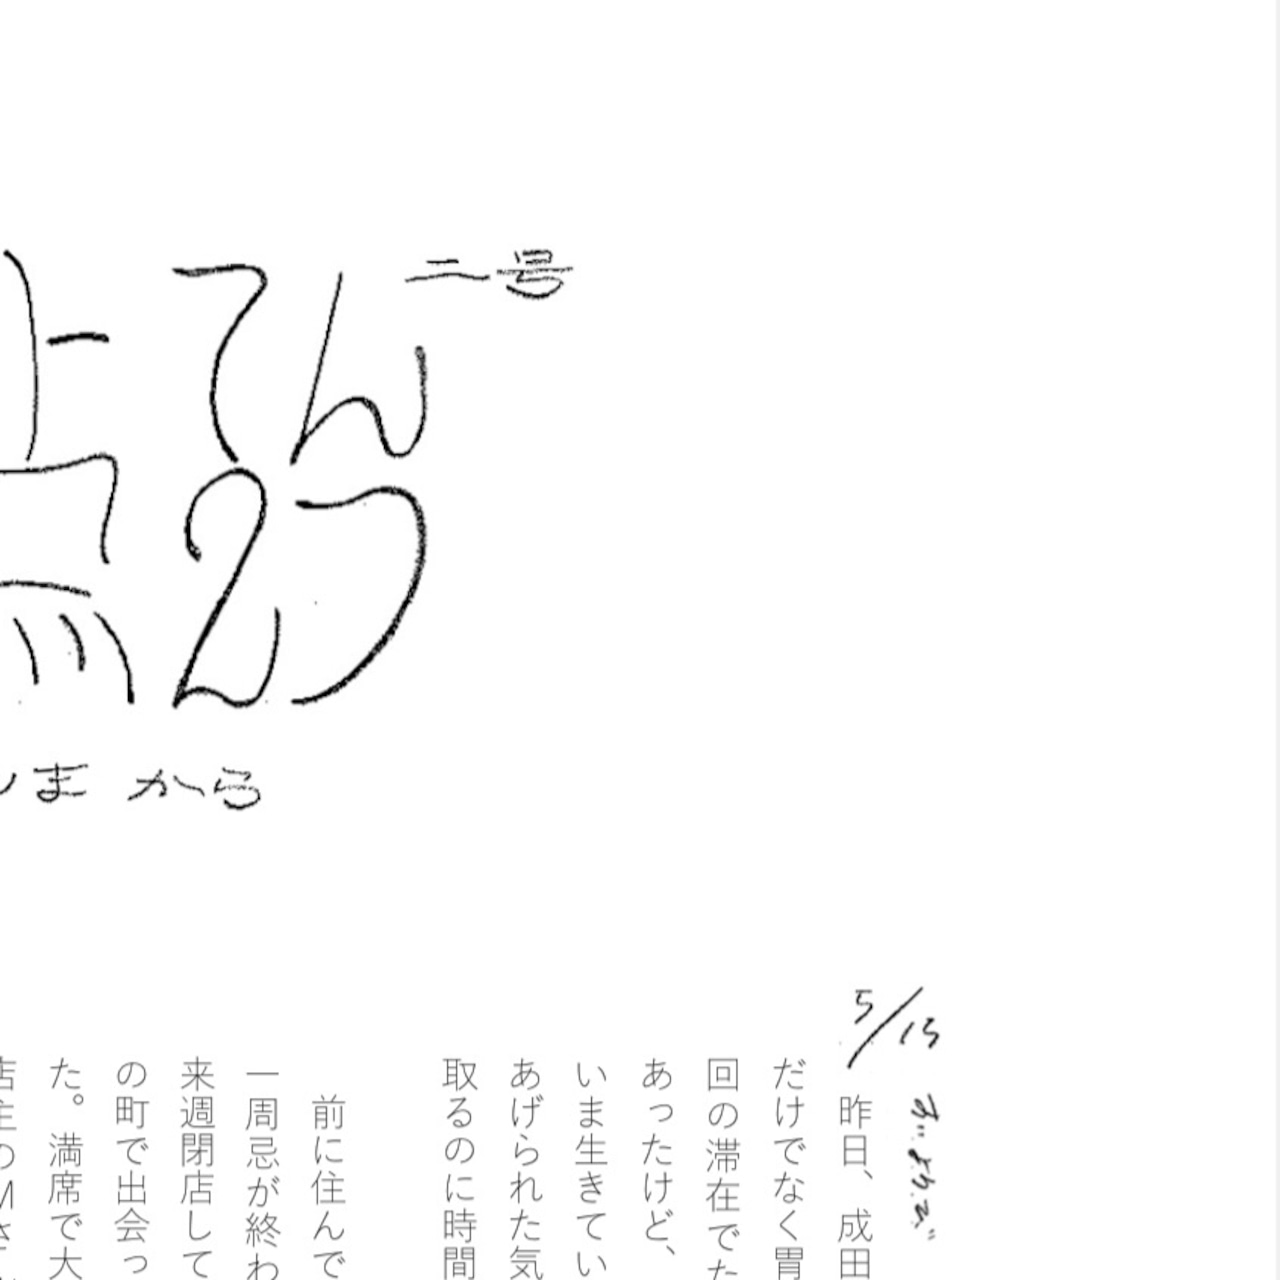 二号
てん
えつ
まから
5/15
昨日、成田
だけでなく胃
回の滞在でた
あったけど、
いま生きてい
あげられた気
取るのに時間
前に住んで
一周忌が終わ
来週閉店して
の町で出会っ
た。満席で大